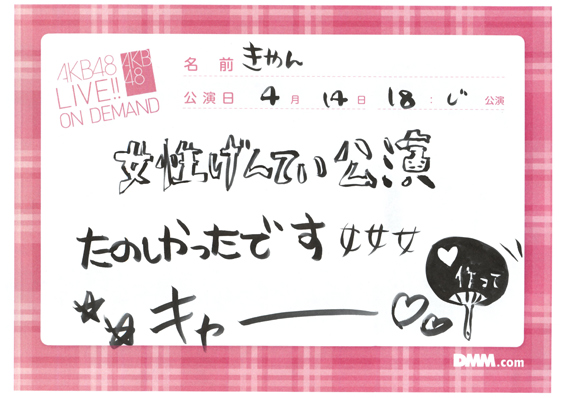 AKB48
LIVE!!
ON DEMAND
AKB
48
名前 きゃん
公演日 4月 14日 18:じ 公演
女性げんてい公演
たのしかったです 女女女
作って
☆☆ キャー ♡♡
DMM.com